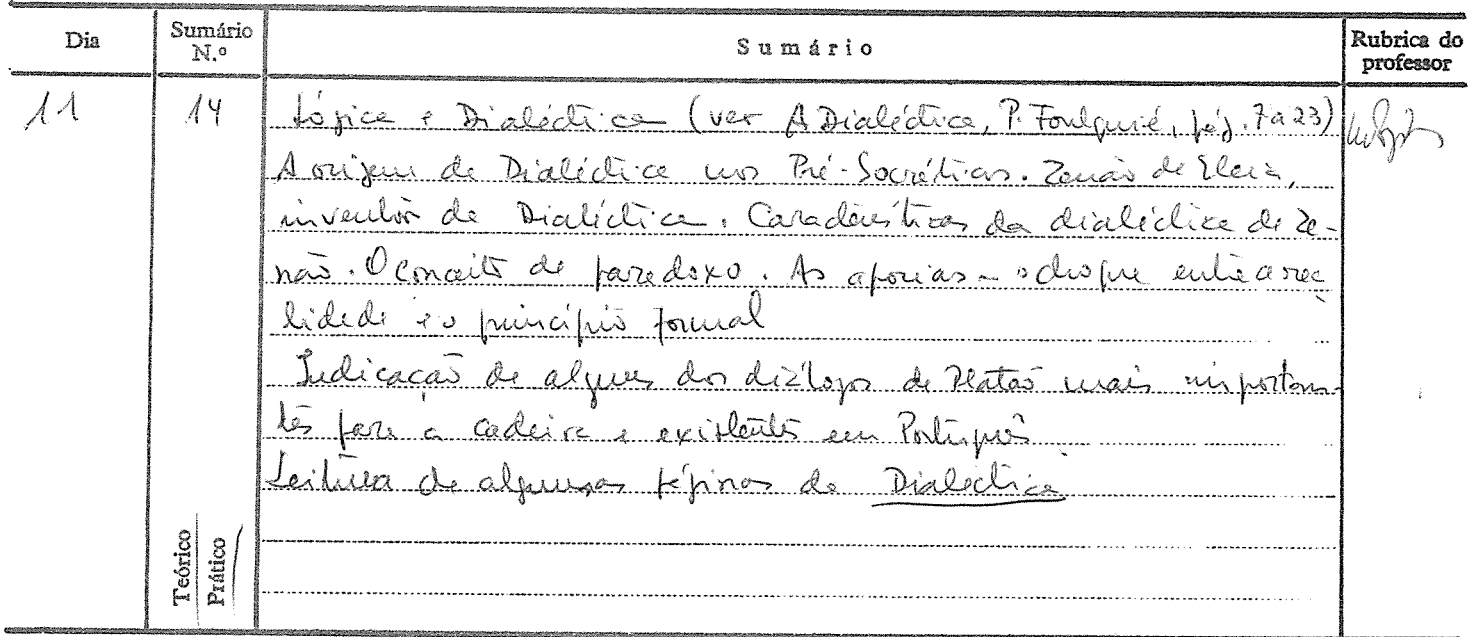 Dia
Sumário N.º
Sumário
Rubrica do professor
11
14
Lógica e Dialéctica (ver A Dialéctica, P. Foulquié, pág. 7 a 23)
A origem da Dialéctica nos Pré-Socráticos. Zenão de Eleia,
inventor da Dialéctica. Características da dialéctica de Ze-
não. O conceito de paradoxo. As aporias - o choque entre a rea
lidade e o princípio formal
Indicação de alguns dos diálogos de Platão mais importan-
tes para a cadeira e existentes em Português
Leitura de algumas páginas da Dialéctica
Teórico
Prático